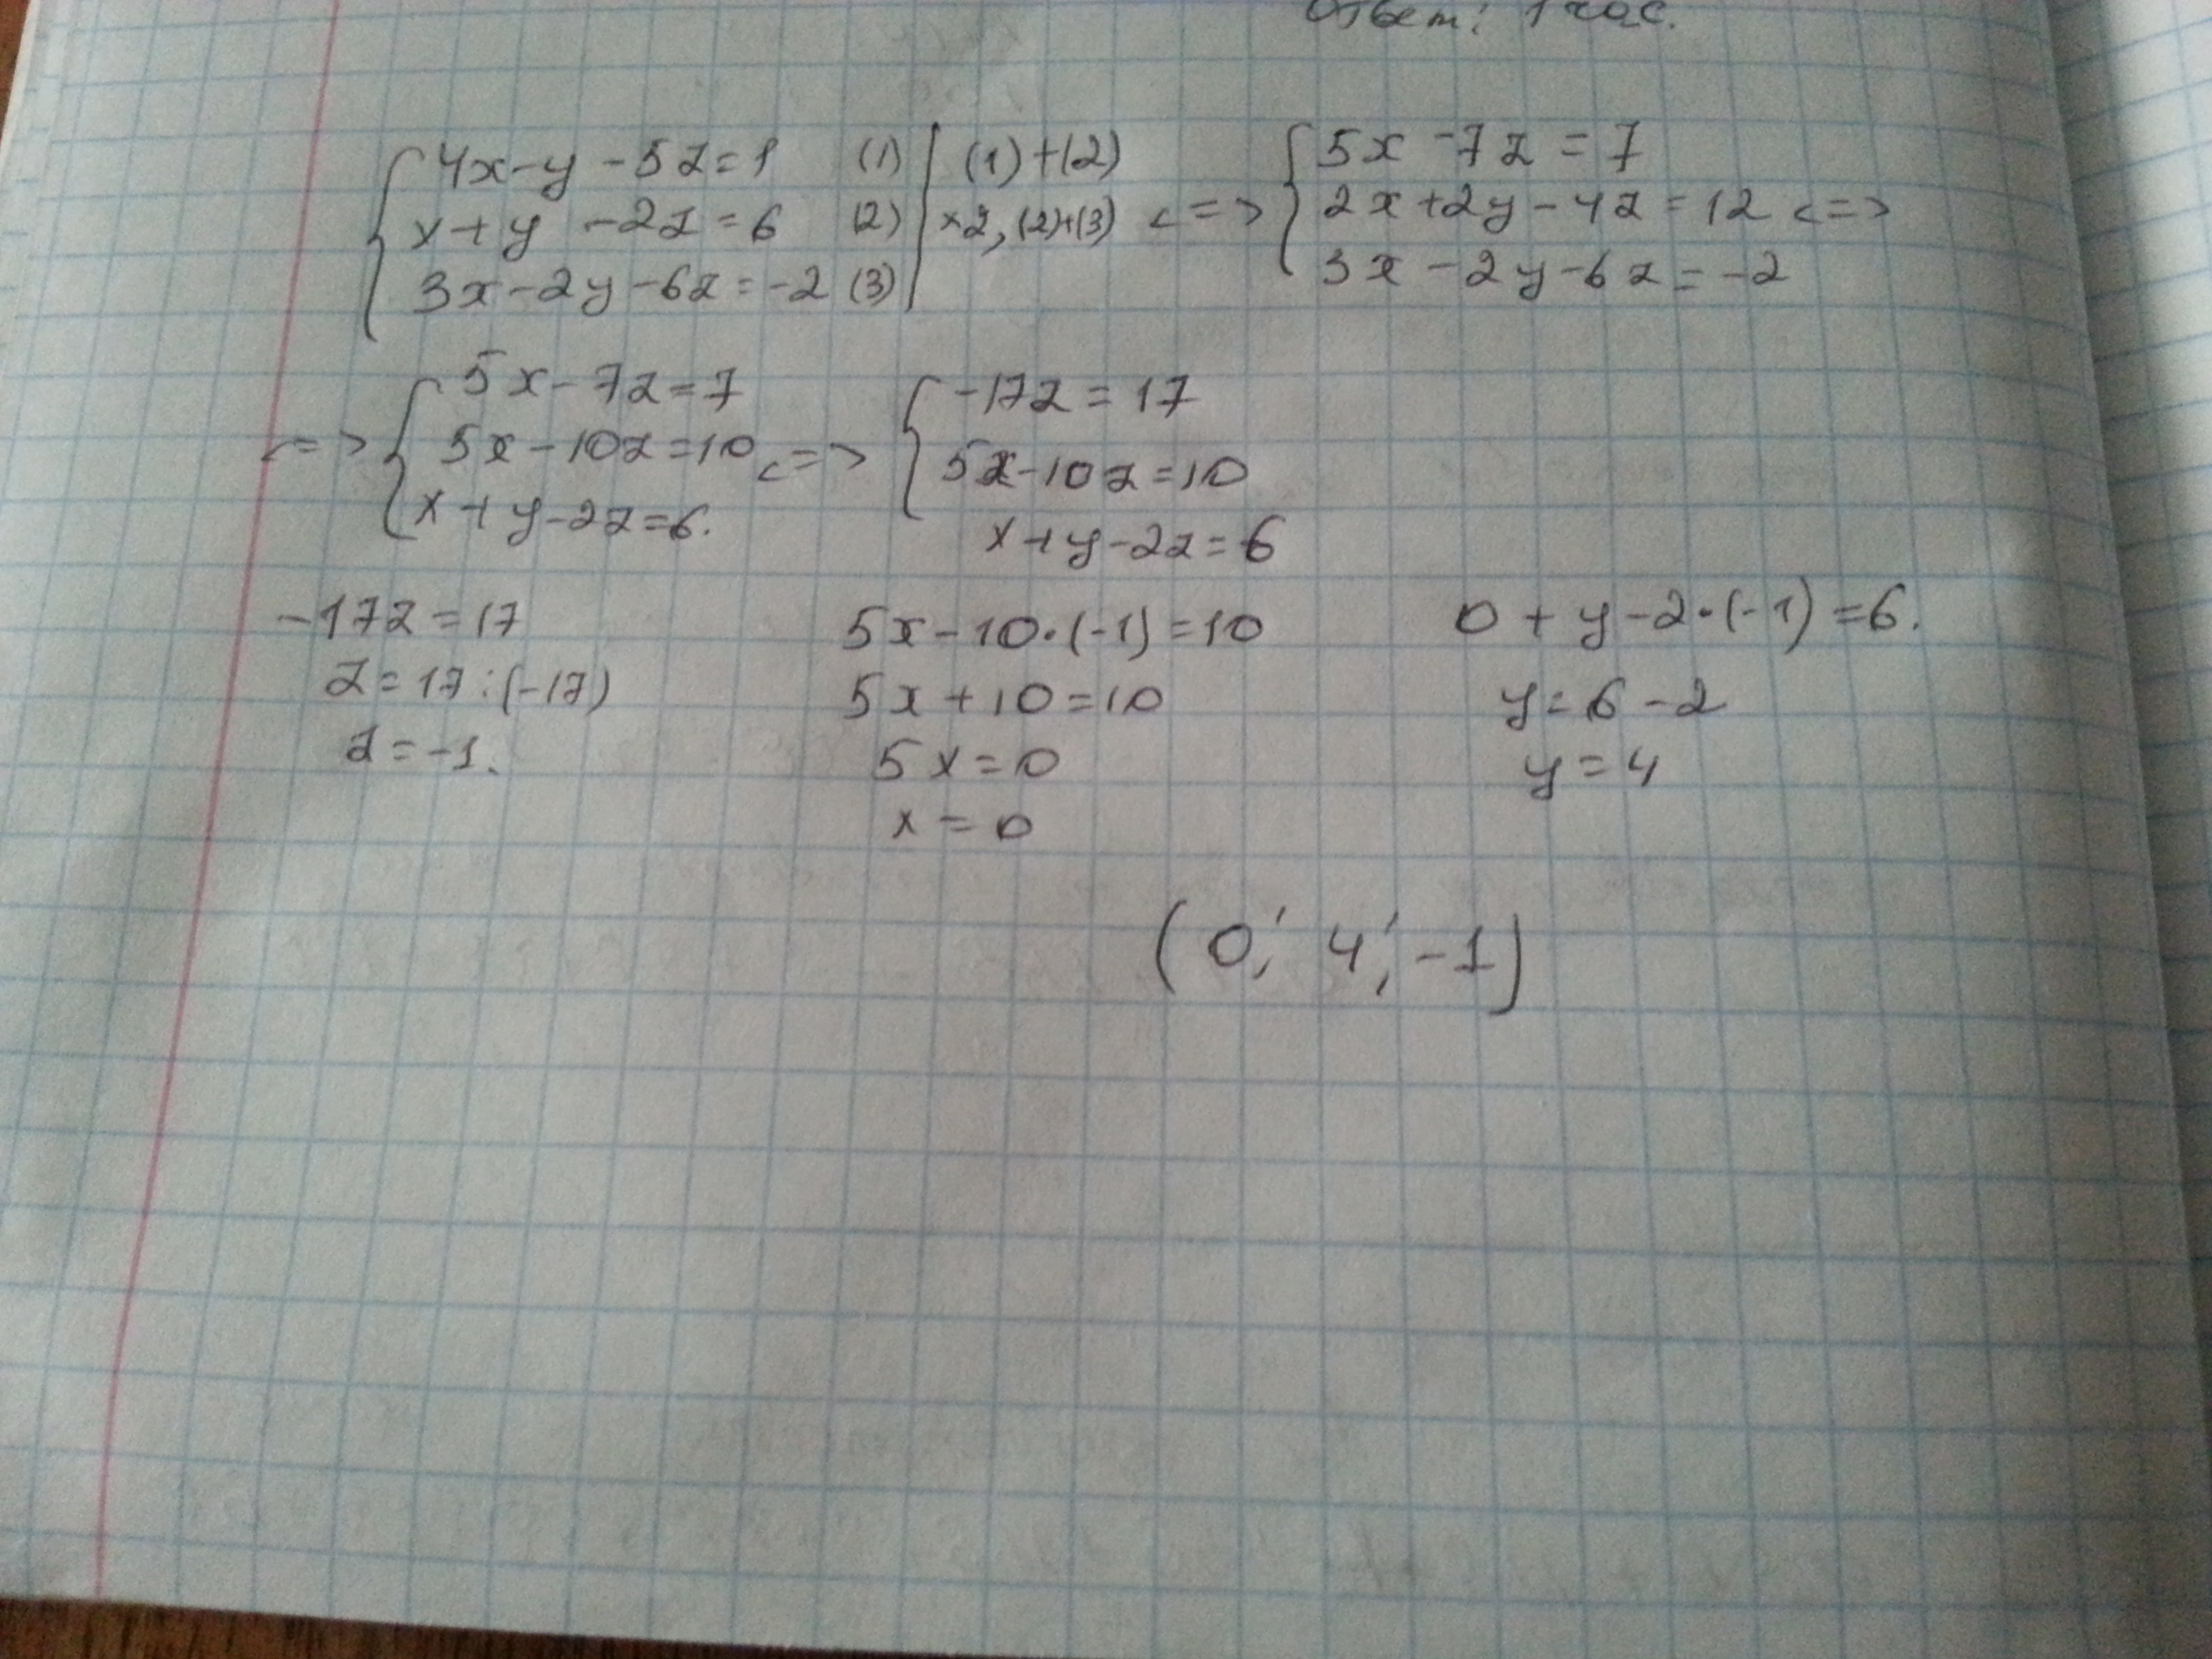 Ответ: 1 час.
4x-y-5z=1 (1) | (1)+(2)
x+y-2z=6 (2) | ×2, (2)+(3) <=>
3x-2y-6z=-2 (3) |
5x-7z=7
2x+2y-4z=12 <=>
3x-2y-6z=-2
<=> { 5x-7z=7
5x-10z=10 <=>
x+y-2z=6.
{ -17z=17
5x-10z=10
x+y-2z=6
-17z=17
z=17:(-17)
z=-1.
5x-10·(-1)=10
5x+10=10
5x=0
x=0
0+y-2·(-1)=6.
y=6-2
y=4
(0; 4; -1)